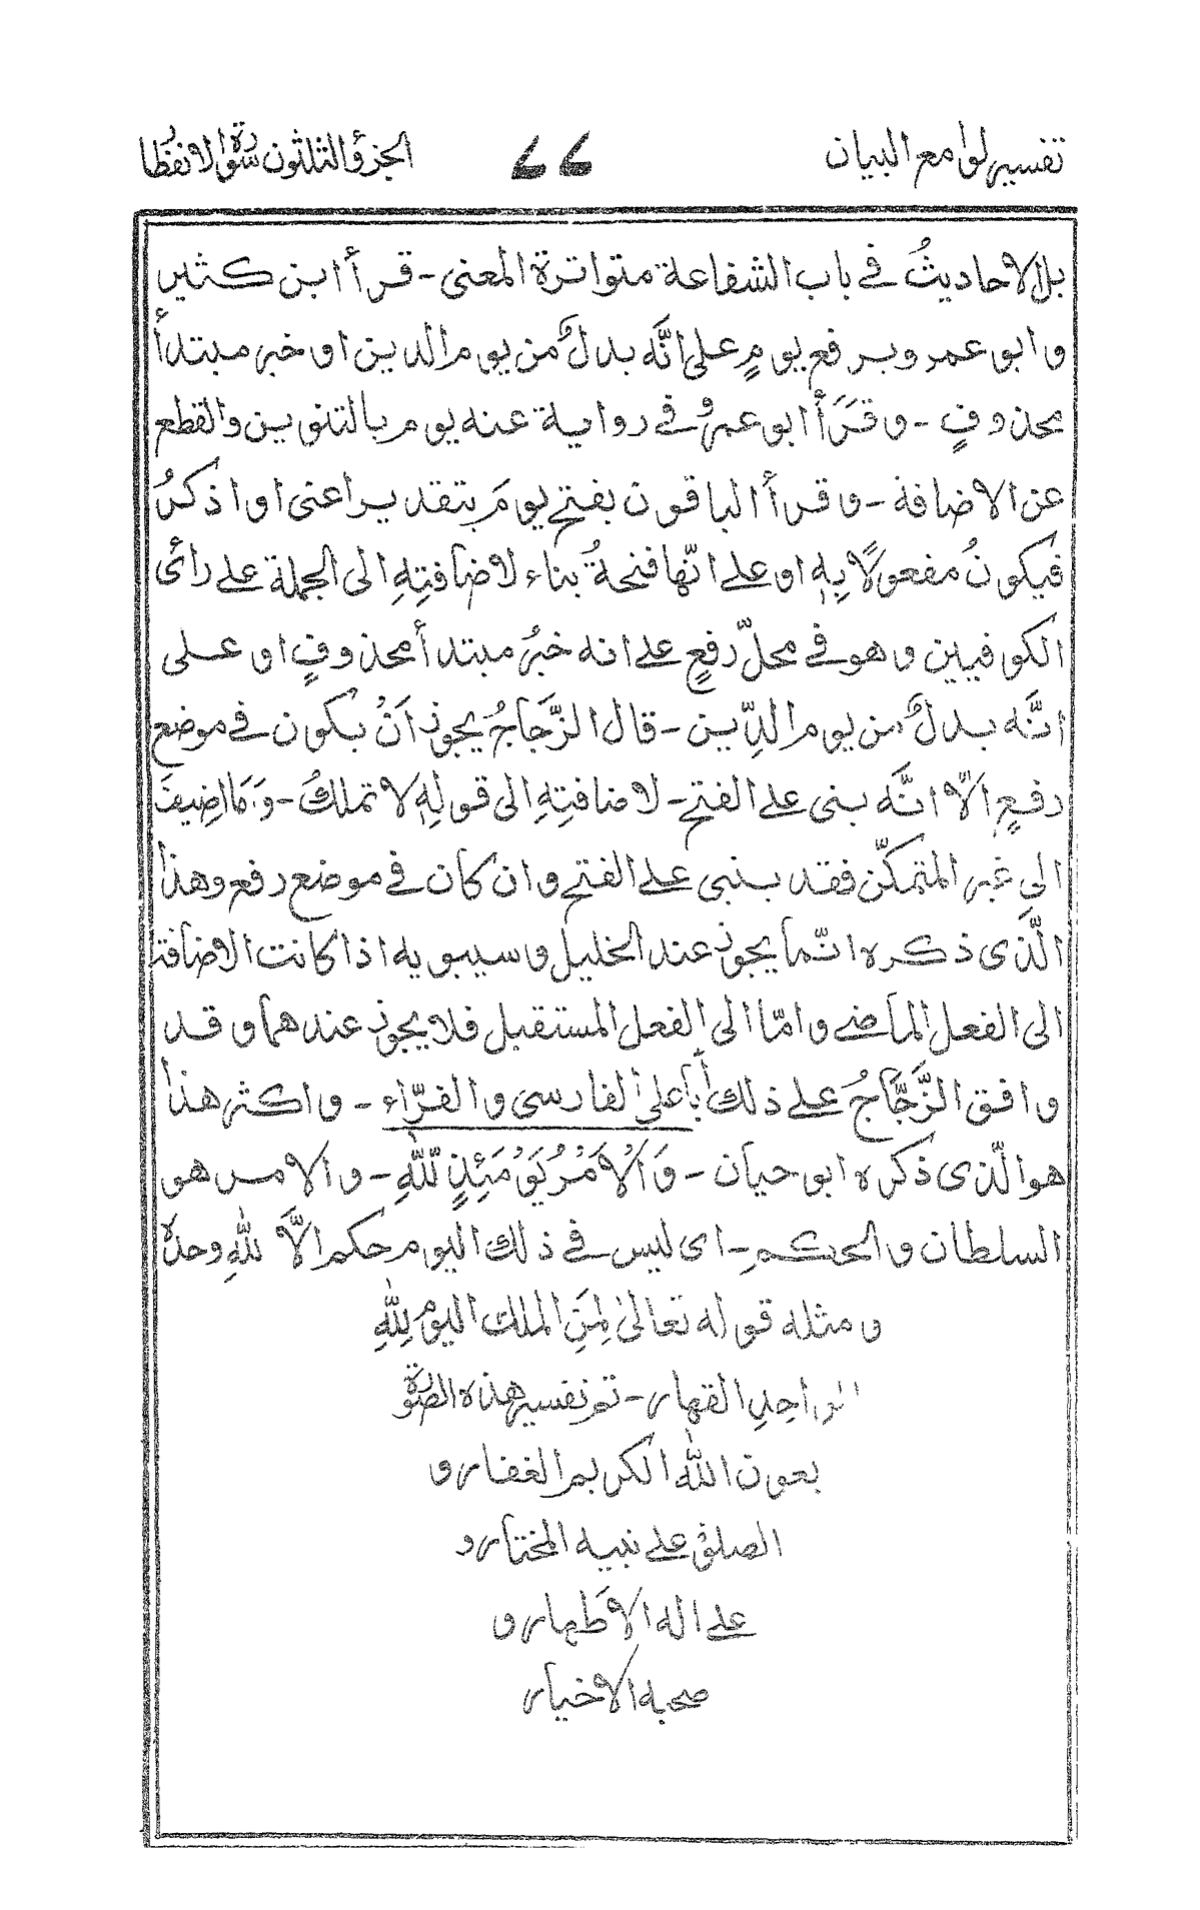 تفسير لوامع البيان ٧٧ الجزؤ الثلثون سورة الانفطار
بل الاحاديثُ في باب الشفاعة متواترة المعنى - قرأ ابن كثير
وابو عمرو برفع يومٍ على انَّه بدلٌ من يوم الدين او خبر مبتدأ
محذوفٍ - وقَرَأ ابو عمرٍو في رواية عنه يوم بالتنوين والقطع
عن الاضافة - وقرأ الباقون بفتح يومَ بتقدير اعنى او اذكرُ
فيكونُ مفعولًا بِهٖ او على انّها فتحةُ بناء لاضافتِهِ الى الجملة على رائ
الكوفيين وهو في محلّ رفعٍ على انه خبرُ مبتدأ محذوفٍ او على
انَّه بدلٌ من يوم الدِّين - قال الزَّجاجُ يجوز اَنْ يكون في موضع
رفعٍ اَلّا انَّه بنى على الفتح - لاضافتِهِ الى قولِهٖ لا تملكُ - وَمَا اضِيفَ
الى غير المتمكّن فقد يبنى على الفتح وان كان في موضع رفع وهذا
الَّذى ذكره انّما يجوز عند الخليل وسيبويه اذا كانت الاضافة
الى الفعل الماضى وامّا الى الفعل المستقبل فلا يجوز عندهما وقد
وافق الزَّجَّاجُ على ذلك اَبا على الفارسى والفرّاء - واكثر هذا
هو الّذى ذكره ابو حيان - وَالْاَمْرُ يَوْمَئِذٍ لِّلّٰهِ - والامر هو
السلطان والحكم - اى ليس في ذلك اليوم حكم الَّا لله وحده
ومثله قوله تعالىٰ لِمَنِ الملك اليومَ لِلّٰهِ
الواحِدِ القهار - تم تفسير هذه السورة
بعون اللّٰه الكريم الغفار و
الصلوة على نبيه المختار و
على اله الاطهار و
صحبه الاخيار